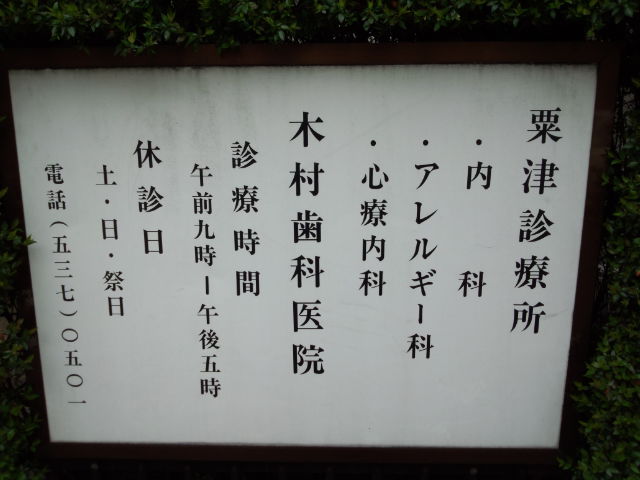 粟津診療所
・内科
・アレルギー科
・心療内科
木村歯科医院
診療時間
午前九時ー午後五時
休診日
土・日・祭日
電話(五三七)〇五〇一